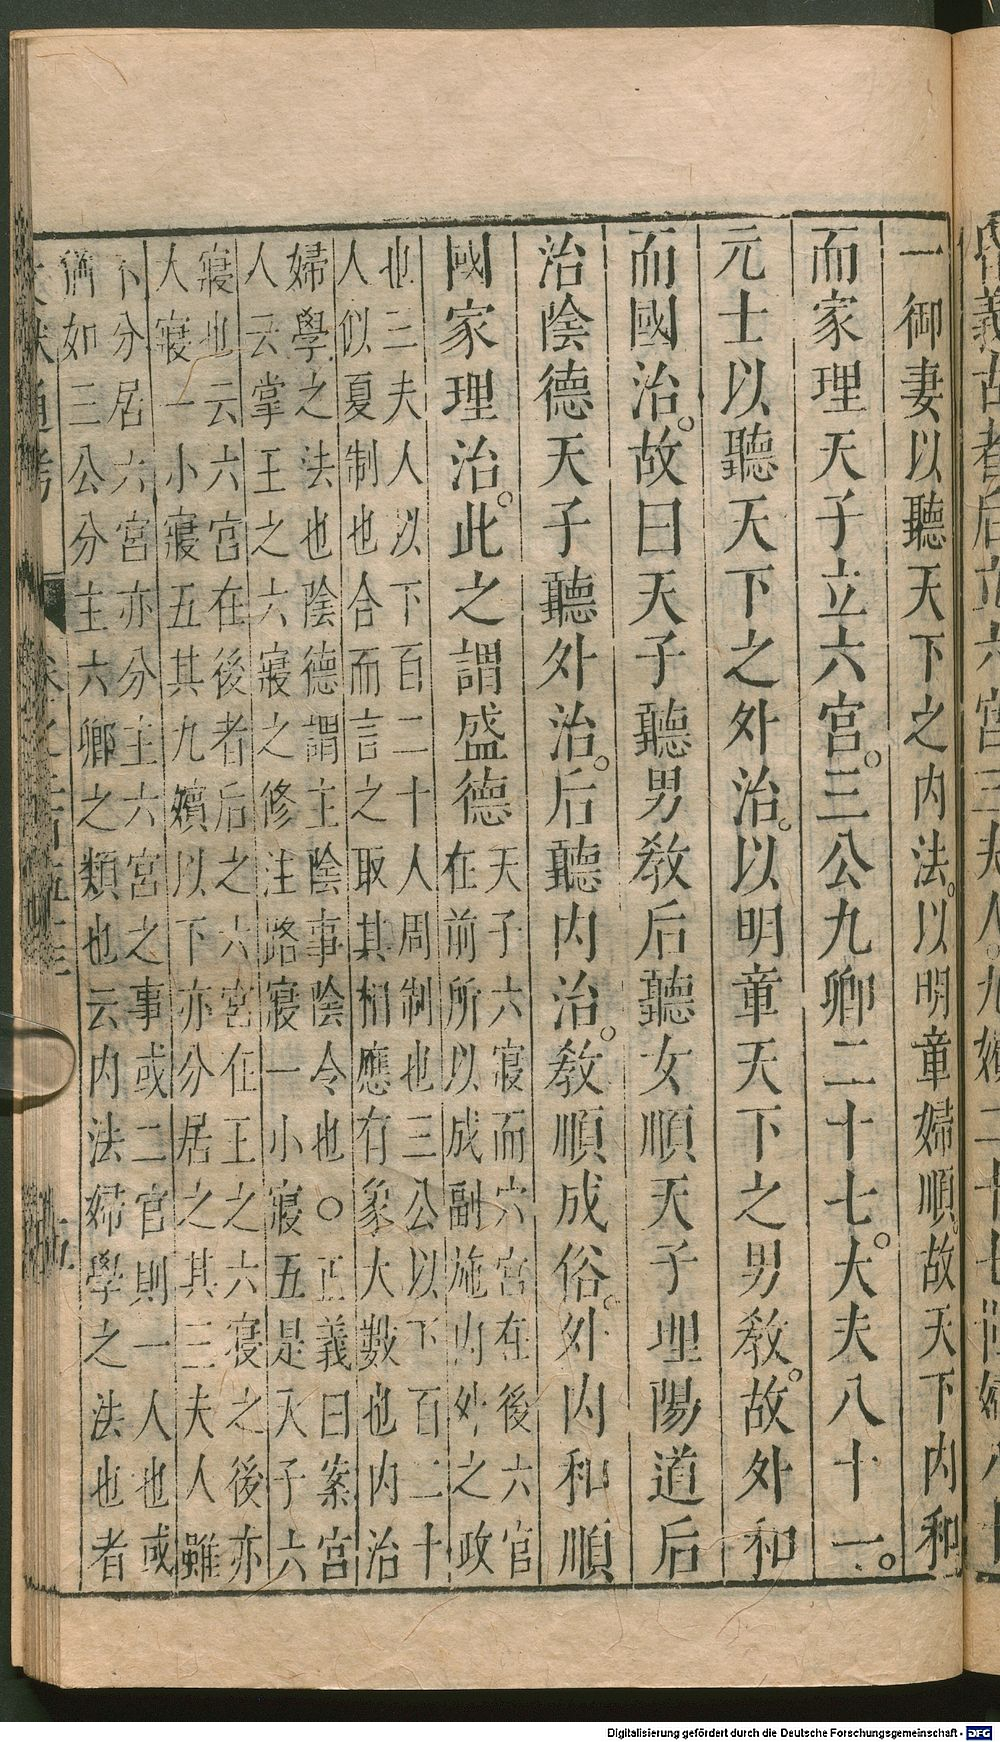 義古者后立六宮三夫人。九嬪二十七世婦八十
一御妻以聽天下之内法。以明章婦順。故天下内和
而家理天子立六宮。三公九卿二十七。大夫八十一。
元士以聽天下之外治。以明章天下之男敎。故外和
而國治。故曰天子聽男敎后聽女順天子理陽道后
治陰德天子聽外治。后聽内治。敎順成俗。外内和順
國家理治。此之謂盛德
天子六寢而六宮在後六官
在前所以成副施内外之政
也三夫人以下百二十人周制也三公以下百二十
人似夏制也合而言之取其相應有象大數也内治
婦學之法也陰德謂主陰事陰令也○正義曰案宮
人云掌王之六寢之修注路寢一小寢五是天子六
寢也云六宮在後者后之六宮在王之六寢之後亦
大寢一小寢五其九嬪以下亦分居之其三夫人雖
不分居六宮亦分主六宮之事或二官則一人也或
猶如三公分主六卿之類也云内法婦學之法也者
文獻通考
Digitalisierung gefördert durch die Deutsche Forschungsgemeinschaft - DFG